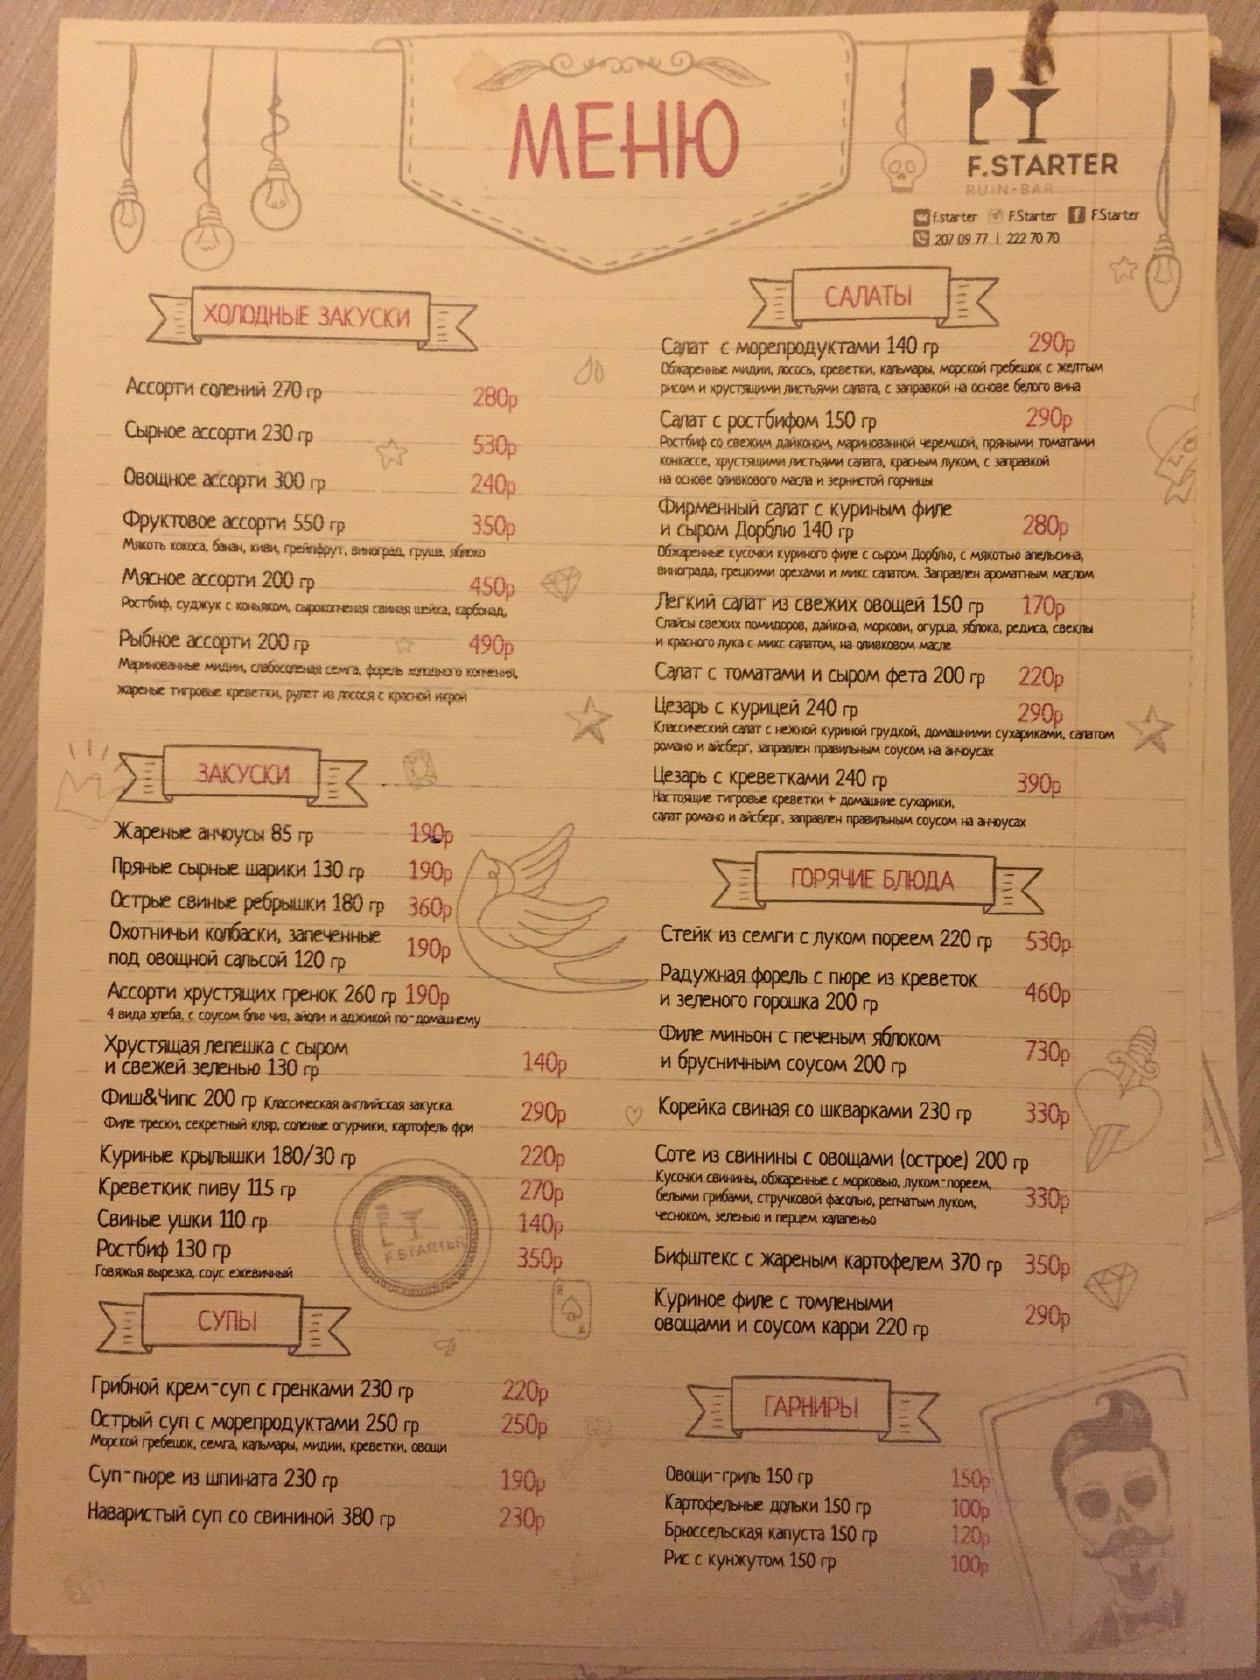 МЕНЮ
F.STARTER
RUIN-BAR
f.starter F.Starter F.Starter
207 09 77 | 222 70 70
ХОЛОДНЫЕ ЗАКУСКИ
Ассорти солений 270 гр 280р
Сырное ассорти 230 гр 530р
Овощное ассорти 300 гр 240р
Фруктовое ассорти 550 гр 350р
Мякоть кокоса, банан, киви, грейпфрут, виноград, груша, яблоко
Мясное ассорти 200 гр 450р
Ростбиф, суджук с коньяком, сырокопченая свиная шейка, карбонад,
Рыбное ассорти 200 гр 490р
Маринованные мидии, слабосоленая семга, форель холодного копчения,
жареные тигровые креветки, рулет из лосося с красной икрой
ЗАКУСКИ
Жареные анчоусы 85 гр 190р
Пряные сырные шарики 130 гр 190р
Острые свиные ребрышки 180 гр 360р
Охотничьи колбаски, запеченные
под овощной сальсой 120 гр 190р
Ассорти хрустящих гренок 260 гр 190р
4 вида хлеба, с соусом блю чиз, айоли и аджикой по-домашнему
Хрустящая лепешка с сыром
и свежей зеленью 130 гр 140р
Фиш&Чипс 200 гр Классическая английская закуска. 290р
Филе трески, секретный кляр, соленые огурчики, картофель фри
Куриные крылышки 180/30 гр 220р
Креветкик пиву 115 гр 270р
Свиные ушки 110 гр 140р
Ростбиф 130 гр 350р
Говяжья вырезка, соус ежевичный
F.STARTER
СУПЫ
Грибной крем-суп с гренками 230 гр 220р
Острый суп с морепродуктами 250 гр 250р
Морской гребешок, семга, кальмары, мидии, креветки, овощи
Суп-пюре из шпината 230 гр 190р
Наваристый суп со свининой 380 гр 230р
САЛАТЫ
Салат с морепродуктами 140 гр 290р
Обжаренные мидии, лосось, креветки, кальмары, морской гребешок с желтым
рисом и хрустящими листьями салата, с заправкой на основе белого вина
Салат с ростбифом 150 гр 290р
Ростбиф со свежим дайконом, маринованной черемшой, пряными томатами
конкассе, хрустящими листьями салата, красным луком, с заправкой
на основе оливкового масла и зернистой горчицы
Фирменный салат с куриным филе
и сыром Дорблю 140 гр 280р
Обжаренные кусочки куриного филе с сыром Дорблю, с мякотью апельсина,
винограда, грецкими орехами и микс салатом. Заправлен ароматным маслом
Легкий салат из свежих овощей 150 гр 170р
Слайсы свежих помидоров, дайкона, моркови, огурца, яблока, редиса, свеклы
и красного лука с микс салатом, на оливковом масле
Салат с томатами и сыром фета 200 гр 220р
Цезарь с курицей 240 гр 290р
Классический салат с нежной куриной грудкой, домашними сухариками, салатом
романо и айсберг, заправлен правильным соусом на анчоусах
Цезарь с креветками 240 гр 390р
Настоящие тигровые креветки + домашние сухарики,
салат романо и айсберг, заправлен правильным соусом на анчоусах
ГОРЯЧИЕ БЛЮДА
Стейк из семги с луком пореем 220 гр 530р
Радужная форель с пюре из креветок
и зеленого горошка 200 гр 460р
Филе миньон с печеным яблоком
и брусничным соусом 200 гр 730р
Корейка свиная со шкварками 230 гр 330р
Соте из свинины с овощами (острое) 200 гр
Кусочки свинины, обжаренные с морковью, луком-пореем,
белыми грибами, стручковой фасолью, репчатым луком, 330р
чесноком, зеленью и перцем халапеньо
Бифштекс с жареным картофелем 370 гр 350р
Куриное филе с томлеными
овощами и соусом карри 220 гр 290р
ГАРНИРЫ
Овощи-гриль 150 гр 150р
Картофельные дольки 150 гр 100р
Брюссельская капуста 150 гр 120р
Рис с кунжутом 150 гр 100р